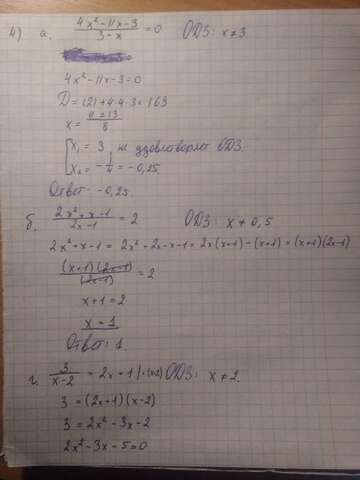 4) а. (4x²-11x-3)/(3-x) = 0 ОДЗ: x≠3
4x²-11x-3=0
D=121+4·4·3=169
x = (11±13)/8
[x₁ = 3, не удовлетворяет ОДЗ.
x₂ = -1/4 = -0,25.
Ответ: -0,25.
б. (2x²+x-1)/(2x-1) = 2 ОДЗ: x≠0,5
2x²+x-1 = 2x²+2x-x-1 = 2x(x+1)-(x+1) = (x+1)(2x-1)
(x+1)(2x-1)/(2x-1) = 2
x+1=2
x=1
Ответ: 1.
г. 3/(x-2) = 2x+1 |·(x-2) ОДЗ: x≠2.
3 = (2x+1)(x-2)
3 = 2x²-3x-2
2x²-3x-5=0